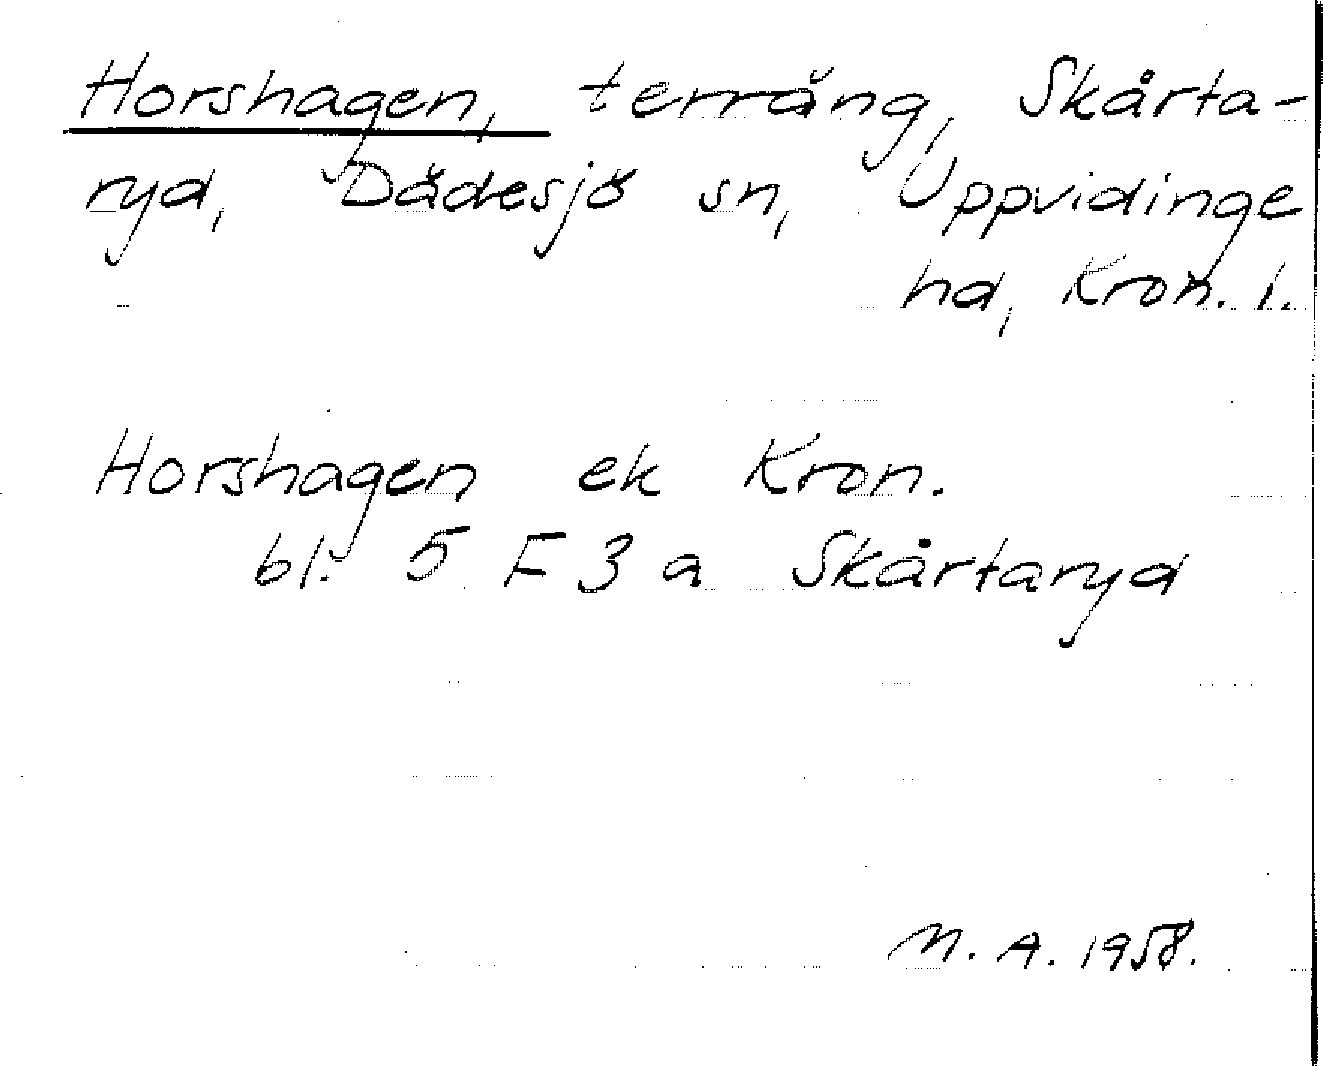 Horshagen, terräng, Skårta-
ryd, Dädesjö sn, Uppvidinge
hd, Kron. l.
Horshagen ek Kron.
bl. 5 F 3 a Skårtaryd
M. A. 1958.